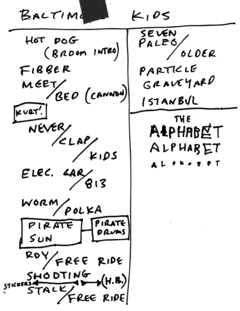 BALTIMO KIDS
HOT DOG
(BROOM INTRO)
FIBBER
MEET/
BED (CANNON)
KURT!
NEVER/
CLAP/
KIDS
ELEC. EAR/
813
WORM/
POLKA
PIRATE SUN
PIRATE DRUMS
ROY/
FREE RIDE
SHOOTING
STICKERS (H.B.)
STALK/
FREE RIDE
SEVEN
PALEO/
OLDER
PARTICLE
GRAVEYARD
ISTANBUL
THE
ALPHABET
ALPHABET
ALPHABET